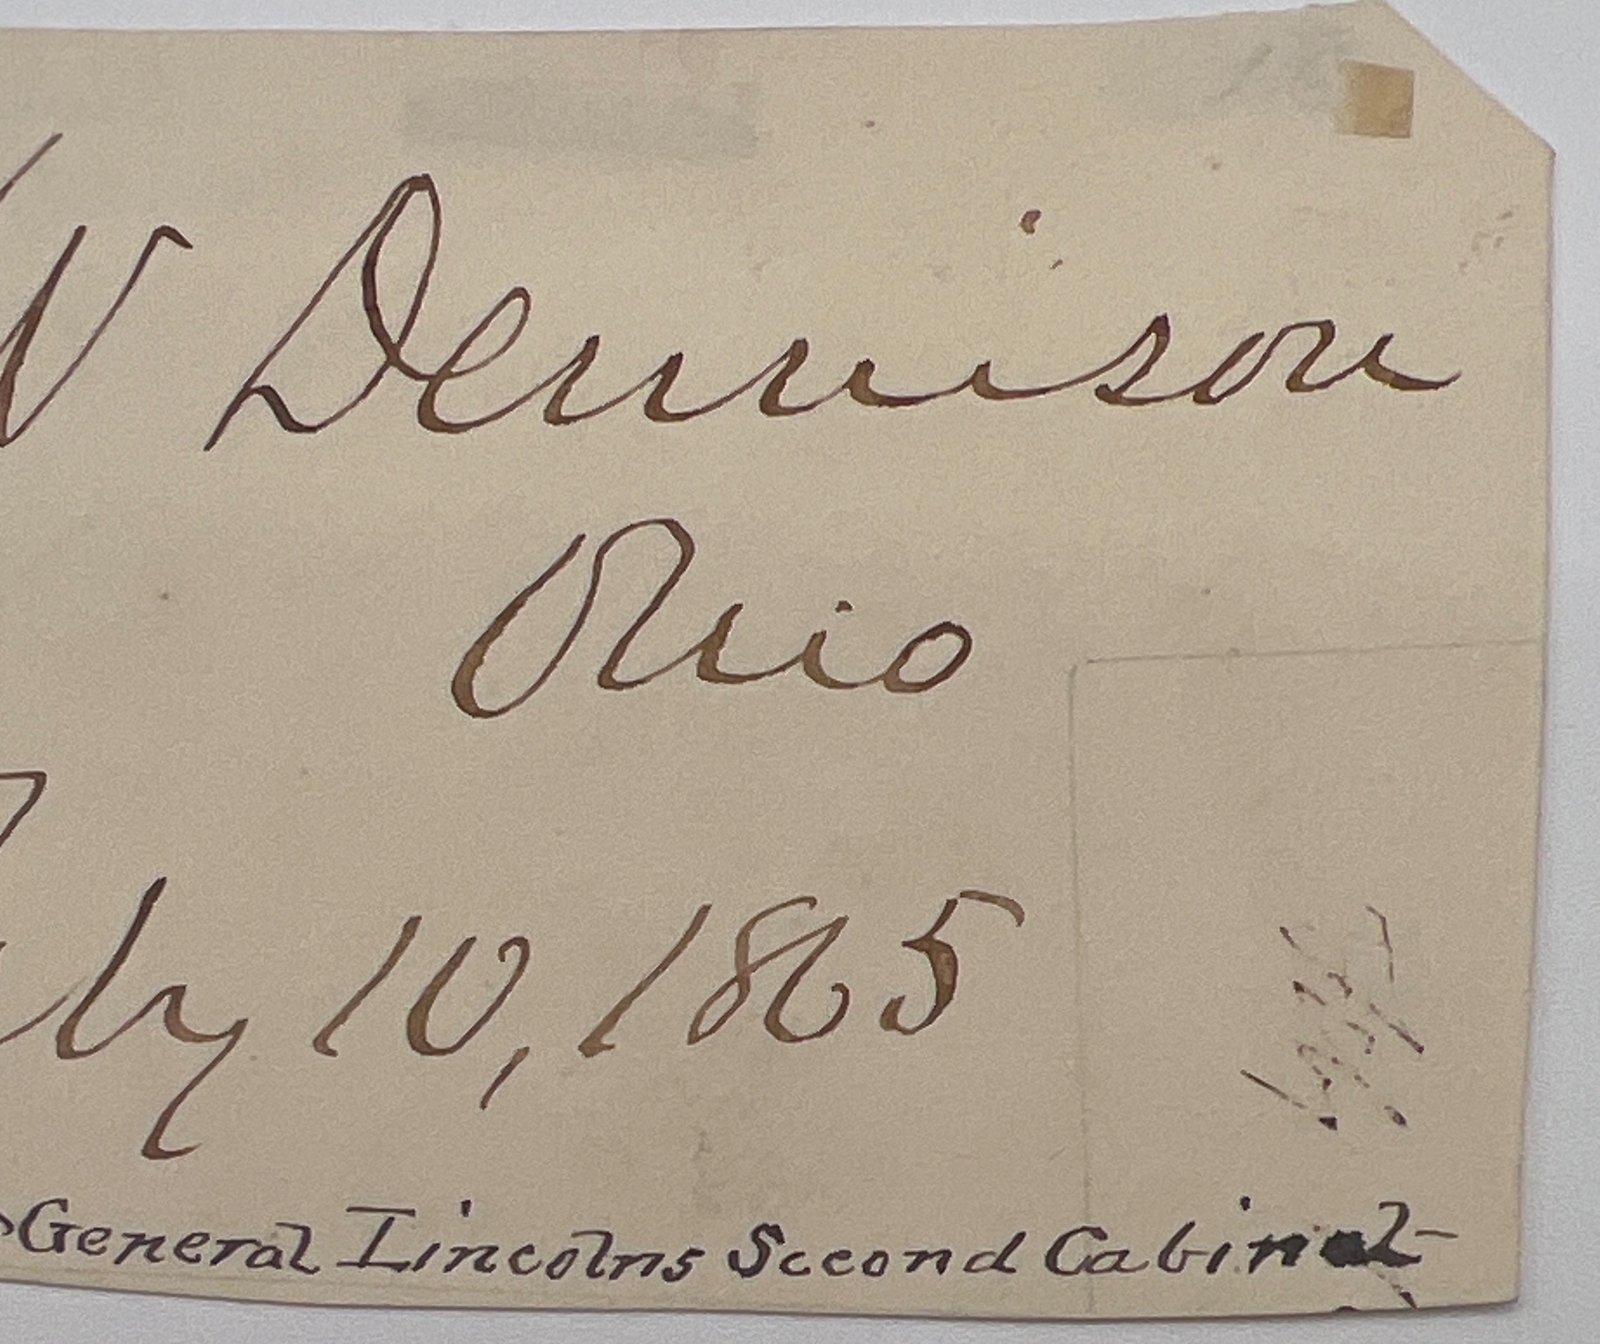 W Dennison
Ohio
Feby 10, 1865
General Lincolns Second Cabinet